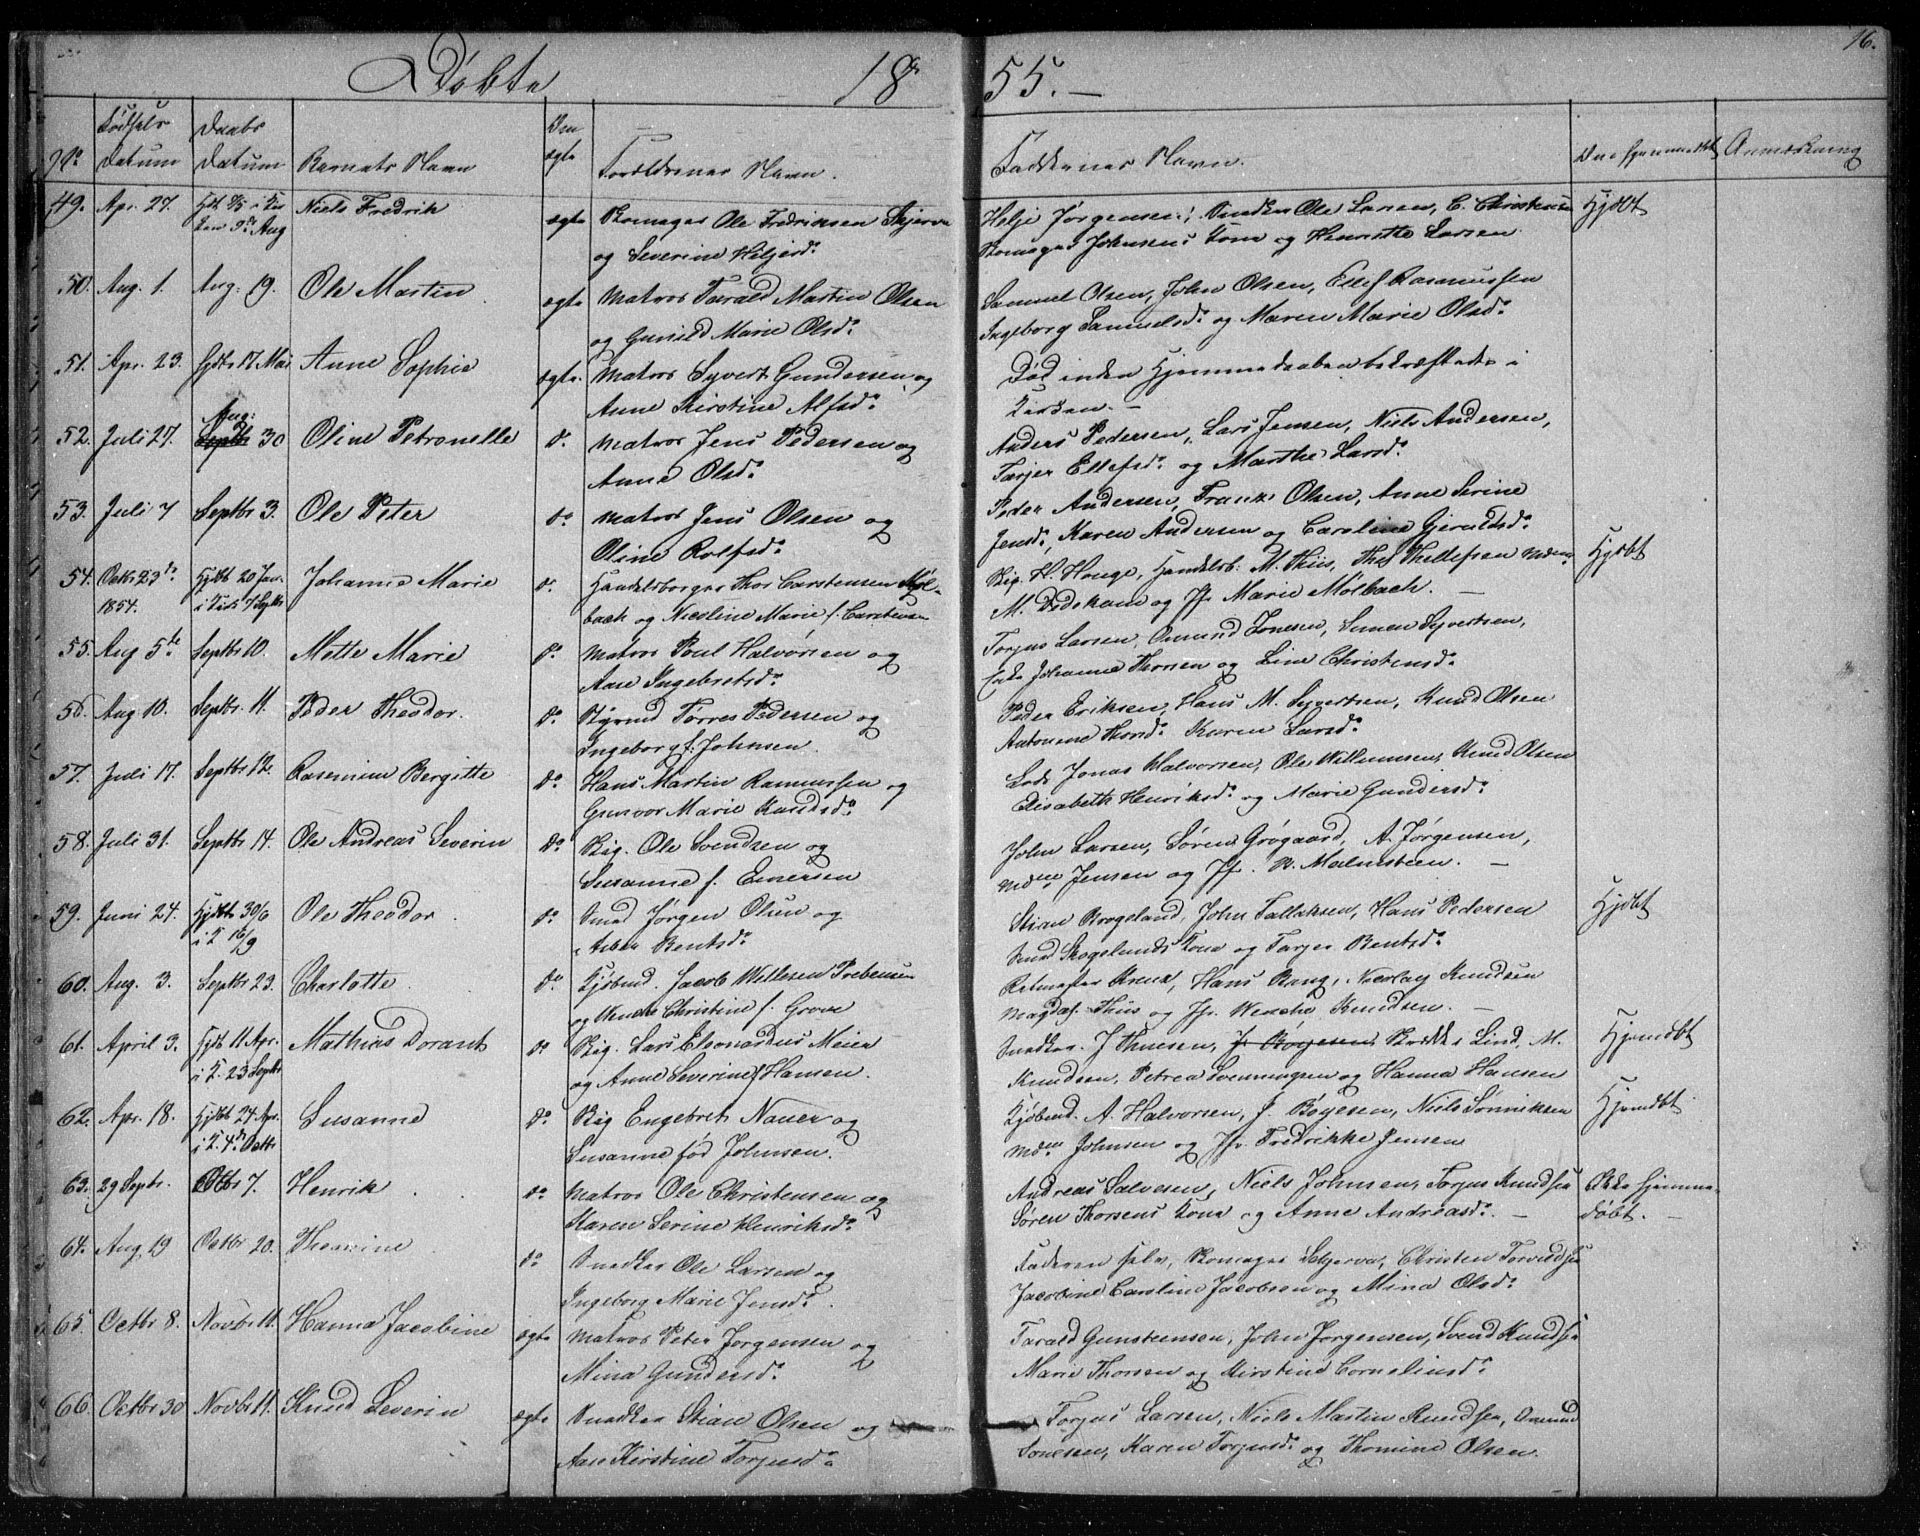 Døbte 1855.
16.
No
Fødsels Datum
Daabs Datum
Barnets Navn
Om ægte
Forældrenes Navn.
Faddernes Navn.
Om hjemmedøbt
Anmærkning
49. Apr. 27. Niels Fredrik
ægte Skomager Ole Fredriksen
og Severine Heljesd.
Helje Jørgensen, Snedker Ole Larsen, C. Christensen
Johnsens Kone og Henriette Larsen
Hjdbt
50. Aug. 1. Aug. 19. Ole Martin
ægte Matros Tarald Martin Olsen
og Gunild Marie Olsd.
Samuel Olsen, John Olsen, Ellef Rasmussen
Ingeborg Samuelsd. og Maren Marie Olsd.
51. Apr. 23. Hjdbt 17 Mai Anne Sophie
ægte. Matros Syvert Gundersen og
Anne Kirstine Alfsd.
Død inden Hjemmedaaben bekræftedes i
Kirken. —
52. Juli 27. Aug: 30 Oline Petronelle
do Matros Jens Pedersen og
Anne Olsd.
Anders Pedersen, Lars Jensen, Niels Andersen,
Tarjer Ellefsd. og Marthe Larsd.
53. Juli 7 Septbr 3. Ole Peter
do Matros Jens Olsen og
Oline Rolfsd.
Peder Andersen, Frants Olsen, Anne Serine
Jensd., Karen Andersen og Caroline Gjeruldsd.
54. Octbr 23de 1854. Hjdbt 20 Jan. Johanne Marie
do Handelsborger Thor Carstensen Møl-
bach og Nicoline Marie f. Carstensen
H. Houge, Handelsb. M. Thiis, Thos Thellefsen Mdme
M. Dedekam og Jfr Marie Mølbach. —
Hjdbt
55. Aug 5te Septbr 10. Mette Marie
do Matros Poul Halvorsen og
Aase Ingebretsd.
Torjus Larsen, Omund Tonesen, Simen Syvertsen,
Enke Johanne Thorsen og Line Christensd.
56. Aug 10. Septbr. 11. Peder Theodor.
do Styrmd Tørres Pedersen og
Ingeborg f. Johnsen.
Peder Eriksen, Hans M. Syvertsen, Knud Olsen
Antonette Thorsd. Karen Larsd.
57. Juli 17. Septbr 12. Rasemine Bergitte
do Hans Martin Rasmussen og
Gunvor Marie Knudsd.
Lods Jonas Halvorsen, Ole Willumsen, Knud Olsen
Elisabeth Henriksd. og Marie Gundersd.
58. Juli 31. Septbr 14. Ole Andreas Severin
do Ole Svendsen og
Susanne f. Emersen
John Larsen, Søren Grøgaard, A. Jørgensen,
Mdme Jensen og Jfr. N. Malmsteen. —
59. Juni 24. Hjdbt 30/6 i K 16/9 Ole Theodor.
do Smed Jørgen Olsen og
Bentsd.
Stian Borgeland, John Tallaksen, Hans Pedersen
Smed Skogelunds Kone og Tarjer Bentsd.
Hjdbt
60. Aug. 3. Septbr 23. Charlotte.
do Kjøbmd. Jacob Willesen Prebensen
og Christine f. Grove
Hans Bang, Nicolay Knudsen
Magdal. Thiis og Jfr. Wenche Knudsen. —
61. April 3. Hjdbt 11 Apr. i K. 23 Septbr Mathias Dorant
do Lars Leonardus Meier
og Anne Severine f. Hansen.
Snedker J Thuesen, J. Bøyesen, Lind, M.
Knudsen, Petrea Svenningsen og Hanna Hansen
Hjemdbt
62. Apr. 18. Hjdbt 24 Apr. i K. 4de Octbr Susanne
do Engebret Nauer og
Susanne fød Johnsen.
Kjøbmd. A. Halvorsen, J. Bøyesen, Niels Sønniksen
Mdme Johnsen og Jfr. Fredrikke Jensen
Hjemdbt
63. 29 Septbr. Octbr 7. Henrik
do Matros Ole Christensen og
Karen Serine Henriksd.
Andreas Salvesen, Niels Johnsen, Torjus Knudsen
Søren Thorsens Kone og Anne Andreasd. —
Ikke hjemme-
døbt. —
64. Aug 19 Octbr 20. Thomine.
do Snedker Ole Larsen og
Ingeborg Marie Jensd.
Faderen selv, Skomager Skjerve, Christen Torvildsen
Jacobine Caroline Jacobsen og Mina Olsd.
65. Octbr 8. Novbr 11. Hanna Jacobine
ægte Matros Peter Jørgensen og
Mina Gundersd.
Tarald Gunsteensen, John Jørgensen, Svend Knudsen
Marie Thorsen og Kirstine Corneliusd.
66. Octbr 30 Novbr 11. Knud Severin
ægte Snedker Stian Olsen og
Aase Kirstine Torjusd.
Torjus Larsen, Niels Martin Knudsen, Omund
Tonesen, Karen Torjusd. og Thomine Olsen.